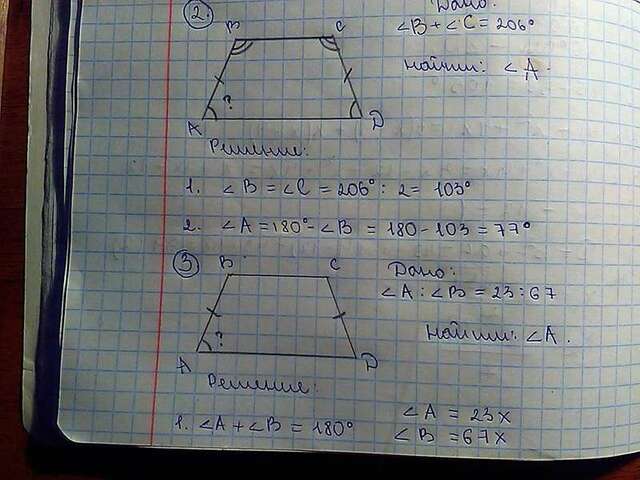 2
Дано:
∠B + ∠C = 206°
Найти: ∠A.
B C
A ? D
Решение:
1. ∠B = ∠C = 206° : 2 = 103°
2. ∠A = 180° - ∠B = 180 - 103 = 77°
3
B C
A ? D
Дано:
∠A : ∠B = 23 : 67
Найти: ∠A.
Решение:
1. ∠A + ∠B = 180°
∠A = 23x
∠B = 67x